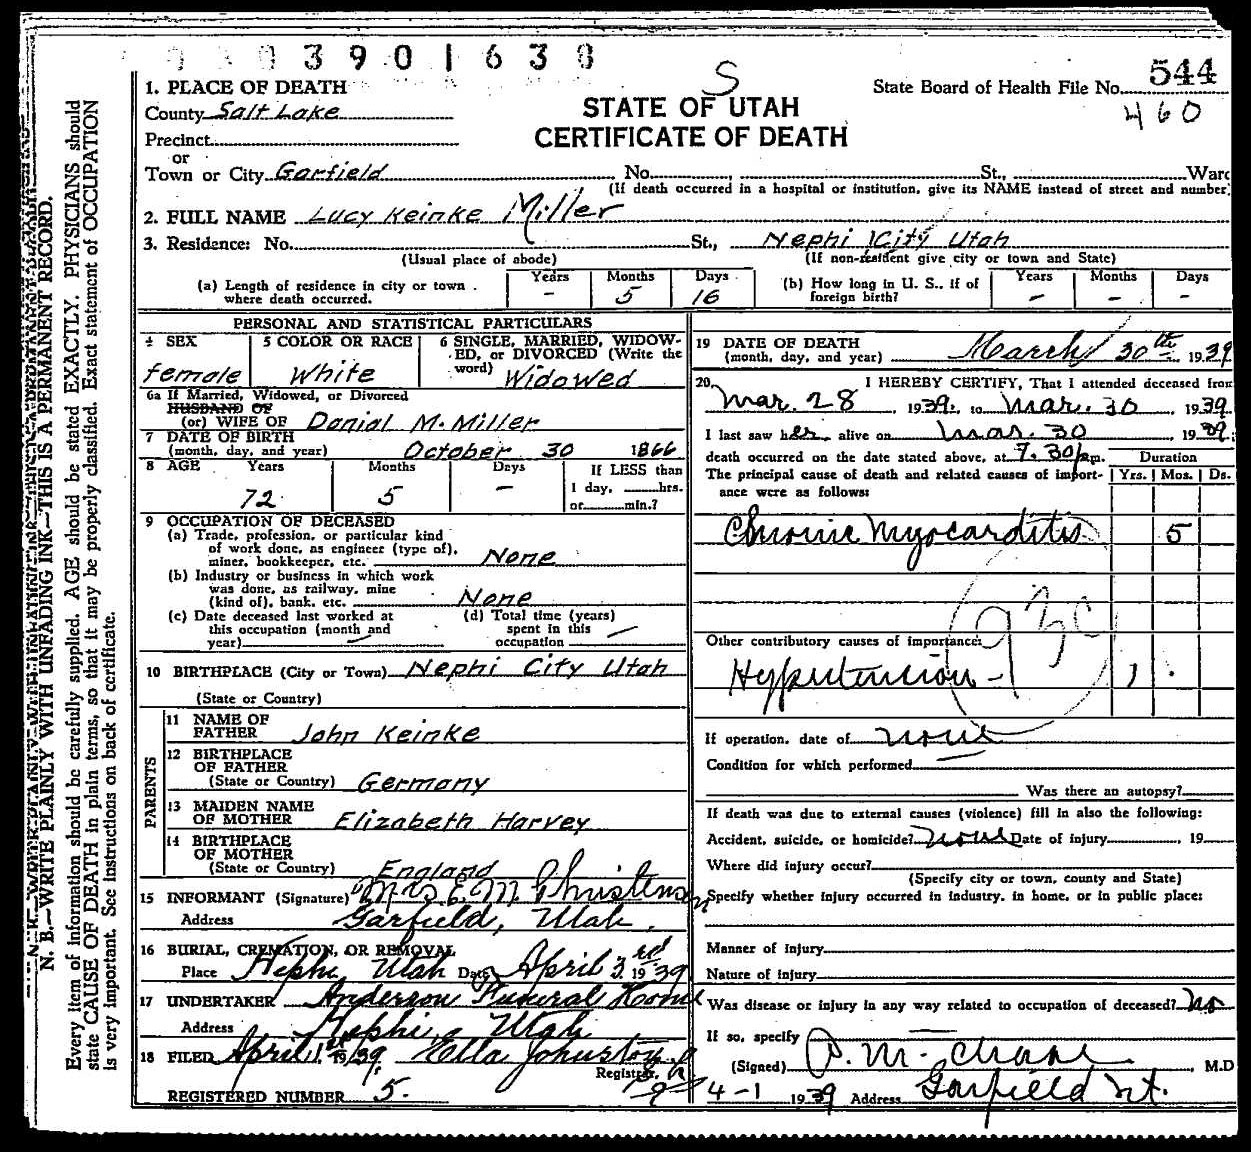 3 9 0 1 6 3 8
S
State Board of Health File No. 544
460
STATE OF UTAH
CERTIFICATE OF DEATH
1. PLACE OF DEATH
County Salt Lake
Precinct
or
Town or City Garfield No. , St., Ward
(If death occurred in a hospital or institution, give its NAME instead of street and number)
2. FULL NAME Lucy Keinke Miller
3. Residence: No. St., Nephi City Utah
(Usual place of abode) (If non-resident give city or town and State)
(a) Length of residence in city or town where death occurred. Years - Months 5 Days 16
(b) How long in U. S., if of foreign birth? Years - Months - Days -
PERSONAL AND STATISTICAL PARTICULARS
4 SEX female
5 COLOR OR RACE White
6 SINGLE, MARRIED, WIDOW-
ED, or DIVORCED (Write the
word) Widowed
6a If Married, Widowed, or Divorced
HUSBAND OF
(or) WIFE OF Danial M. Miller
7 DATE OF BIRTH
(month, day, and year) October 30 1866
8 AGE Years 72 Months 5 Days - If LESS than
1 day, hrs.
or min.?
9 OCCUPATION OF DECEASED
(a) Trade, profession, or particular kind
of work done, as engineer (type of),
miner, bookkeeper, etc. None
(b) Industry or business in which work
was done, as railway, mine
(kind of), bank, etc. None
(c) Date deceased last worked at
this occupation (month and
year)
(d) Total time (years)
spent in this
occupation
10 BIRTHPLACE (City or Town) Nephi City Utah
(State or Country)
PARENTS
11 NAME OF
FATHER John Keinke
12 BIRTHPLACE
OF FATHER
(State or Country) Germany
13 MAIDEN NAME
OF MOTHER Elizabeth Harvey
14 BIRTHPLACE
OF MOTHER
(State or Country) England
15 INFORMANT (Signature) Mrs E. M. Christensen
Address Garfield, Utah.
16 BURIAL, CREMATION, OR REMOVAL
Place Nephi, Utah Date April 3rd 1939
17 UNDERTAKER Anderson Funeral Home
Address Nephi, Utah
18 FILED April 1st 1939. Ella Johnston
Registrar.
REGISTERED NUMBER 5.
19 DATE OF DEATH
(month, day, and year) March 30th 1939
20. I HEREBY CERTIFY, That I attended deceased from
Mar. 28, 1939, to Mar. 30, 1939.
I last saw her alive on Mar. 30 1939;
death occurred on the date stated above, at 7:30 p.m. Duration
The principal cause of death and related causes of import-
ance were as follows: Yrs. Mos. Ds.
Chronic Myocarditis 5
93c
Other contributory causes of importance:
Hypertension - 1
If operation, date of none
Condition for which performed
Was there an autopsy?
If death was due to external causes (violence) fill in also the following:
Accident, suicide, or homicide? none Date of injury , 19
Where did injury occur?
(Specify city or town, county and State)
Specify whether injury occurred in industry, in home, or in public place:
Manner of injury
Nature of injury
Was disease or injury in any way related to occupation of deceased? no
If so, specify
(Signed) , M.D
4-1 1939 Address Garfield Ut.
N. B.—WRITE PLAINLY WITH UNFADING INK—THIS IS A PERMANENT RECORD.
Every item of information should be carefully supplied. AGE should be stated EXACTLY. PHYSICIANS should
state CAUSE OF DEATH in plain terms, so that it may be properly classified. Exact statement of OCCUPATION
is very important. See instructions on back of certificate.